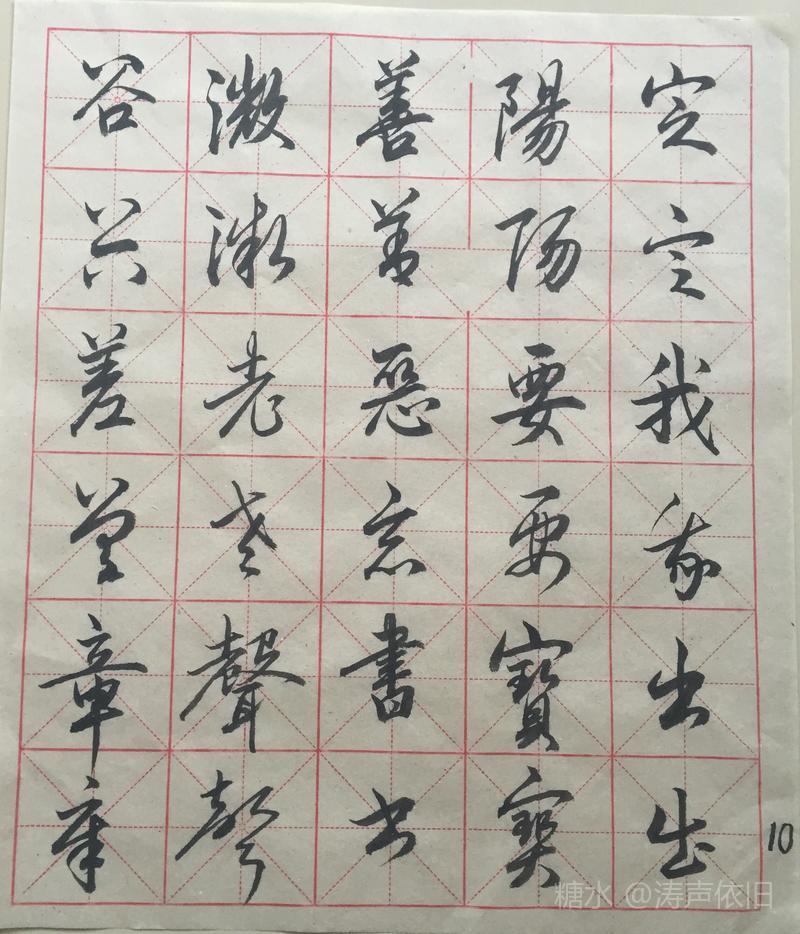 定定我我出出
陽陽要要寶寶
善善惡惡書書
微微老老聲聲
谷谷差差章章
10
糖水 @涛声依旧